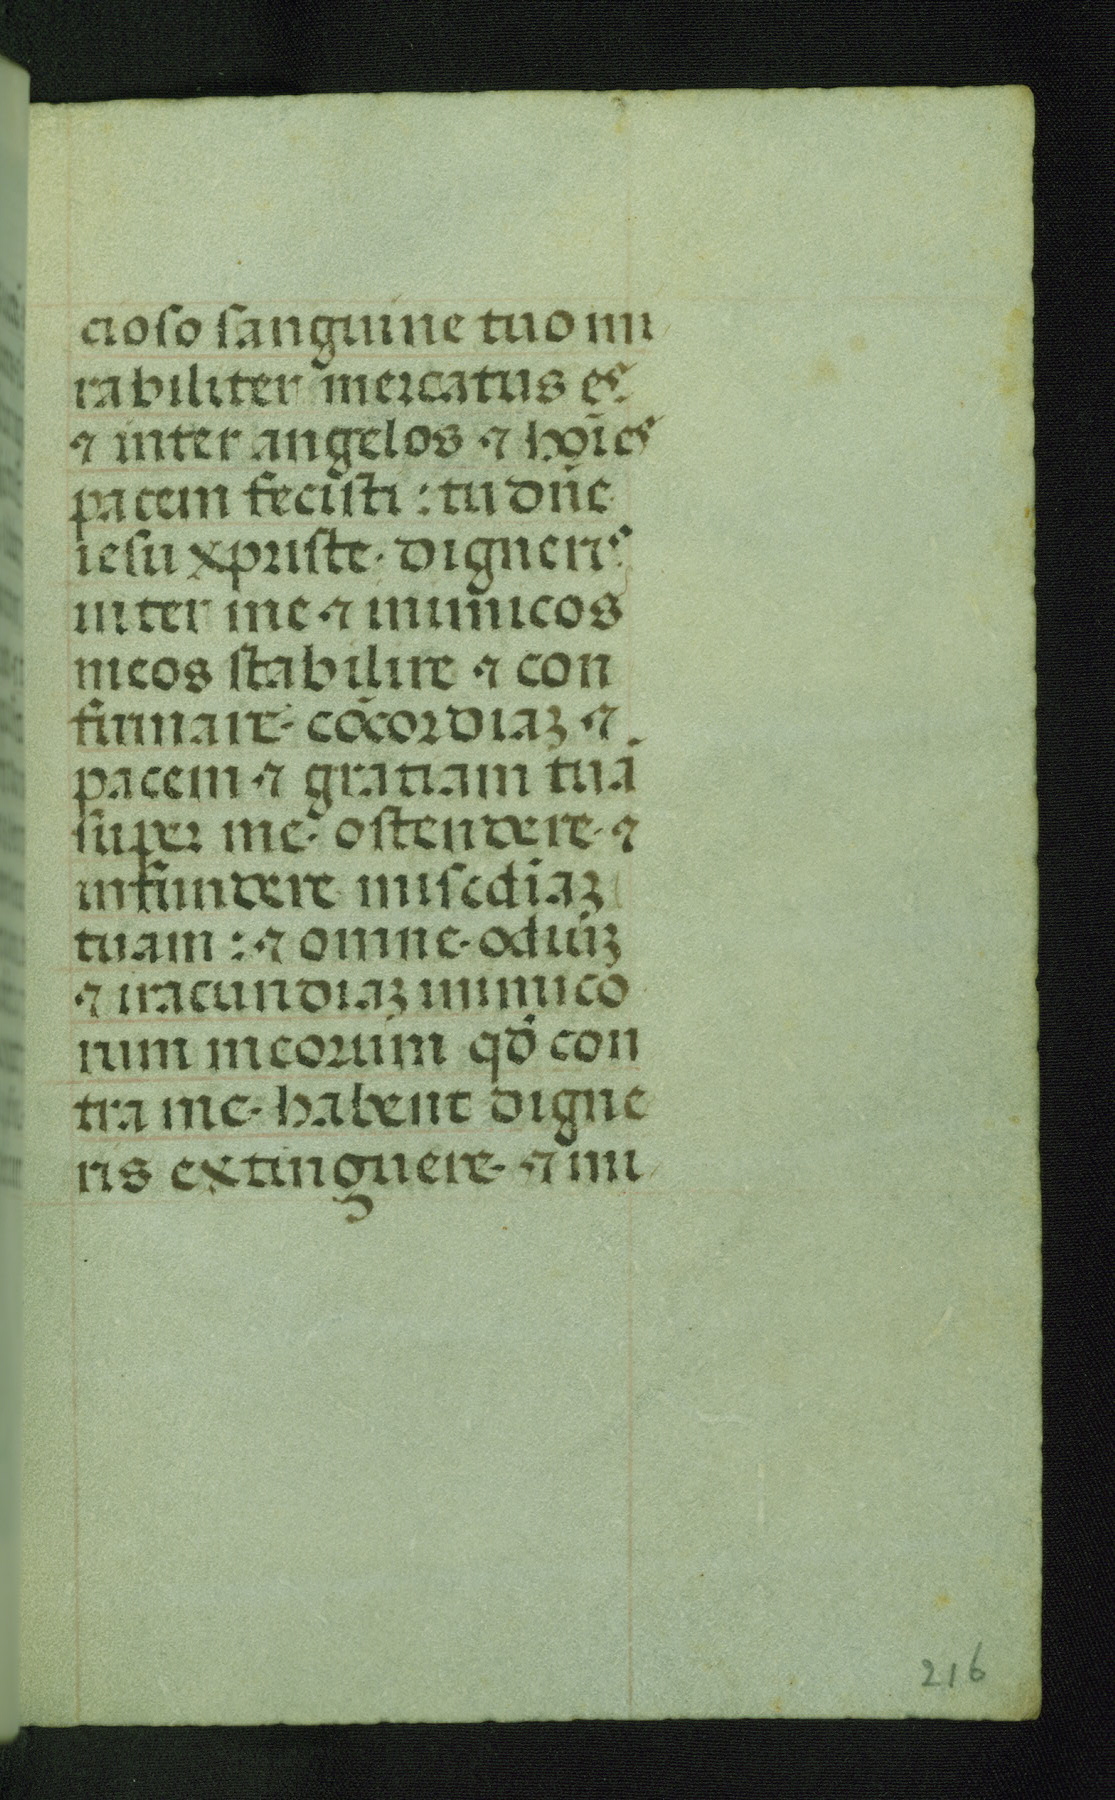 cioso sanguine tuo mi
rabiliter mercatus es
⁊ inter angelos ⁊ hoīes
pacem fecisti : tu dn̄e
iesu xpriste · digneris
inter me · ⁊ inimicos
meos stabilire ⁊ con
firmare · cōcordiaꝫ · ⁊
pacem · ⁊ gratiam tuā
super me · ostendere · ⁊
infundere miscdiaꝫ
tuam : · ⁊ omne · odiuꝫ
⁊ iracundiaꝫ inimico
rum meorum qd̄ con
tra me · habent digne
ris extinguere · ⁊ mi
216